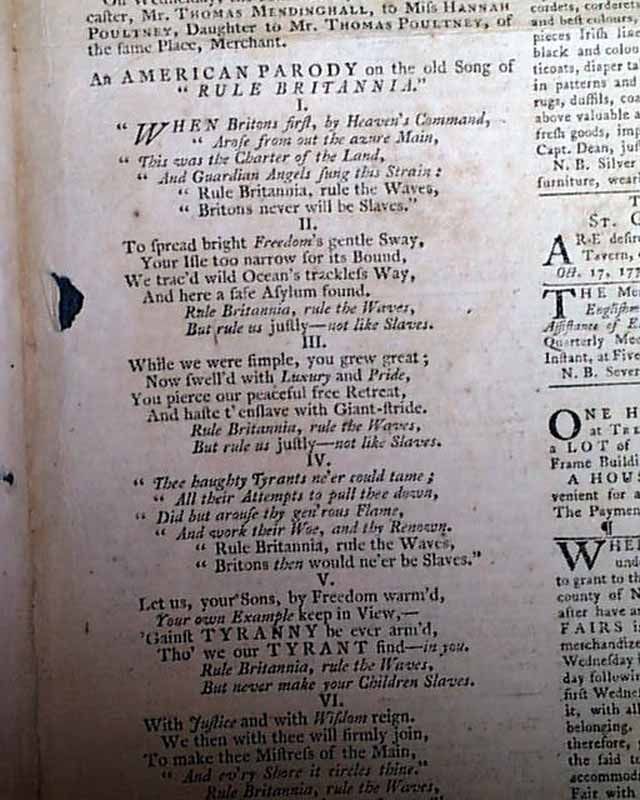 caster, Mr. THOMAS MENDINGHALL, to Miſs HANNAH
POULTNEY, Daughter to Mr. THOMAS POULTNEY, of
the ſame Place, Merchant.
An AMERICAN PARODY on the old Song of
"RULE BRITANNIA."
I.
"WHEN Britons firſt, by Heaven's Command,
"Aroſe from out the azure Main,
"This was the Charter of the Land,
"And Guardian Angels ſung this Strain:
"Rule Britannia, rule the Waves,
"Britons never will be Slaves."
II.
To ſpread bright Freedom's gentle Sway,
Your Iſle too narrow for its Bound,
We trac'd wild Ocean's trackleſs Way,
And here a ſafe Aſylum found.
Rule Britannia, rule the Waves,
But rule us juſtly—not like Slaves.
III.
While we were ſimple, you grew great;
Now ſwell'd with Luxury and Pride,
You pierce our peaceful free Retreat,
And haſte t'enſlave with Giant-ſtride.
Rule Britannia, rule the Waves,
But rule us juſtly—not like Slaves.
IV.
"Thee haughty Tyrants ne'er could tame;
"All their Attempts to pull thee down,
"Did but arouſe thy gen'rous Flame,
"And work their Woe, and thy Renown.
"Rule Britannia, rule the Waves,
"Britons then would ne'er be Slaves."
V.
Let us, your Sons, by Freedom warm'd,
Your own Example keep in View,—
'Gainſt TYRANNY be ever arm'd,
Tho' we our TYRANT find—in you.
Rule Britannia, rule the Waves,
But never make your Children Slaves.
VI.
With Juſtice and with Wiſdom reign.
We then with thee will firmly join,
To make thee Miſtreſs of the Main,
"And ev'ry Shore it circles thine."
Rule Britannia, rule the Waves,
cordets, corderets
and beſt colours,
pieces Iriſh
black and
ticoats, diaper
in patterns and
rugs, duffils,
above valuable
freſh goods,
Capt. Dean,
N. B. Silver
furniture,
ST.
ARE
Tavern,
THE
Aſſiſtance of
Quarterly
Inſtant, at Five
N. B.
ONE
at
a LOT of
Frame
A
venient for a
The
¶
to grant to the
county of N
after have
FAIRS
Wedneſday
day
firſt
it, with
belonging.
therefore,
the ſaid to
Fair with